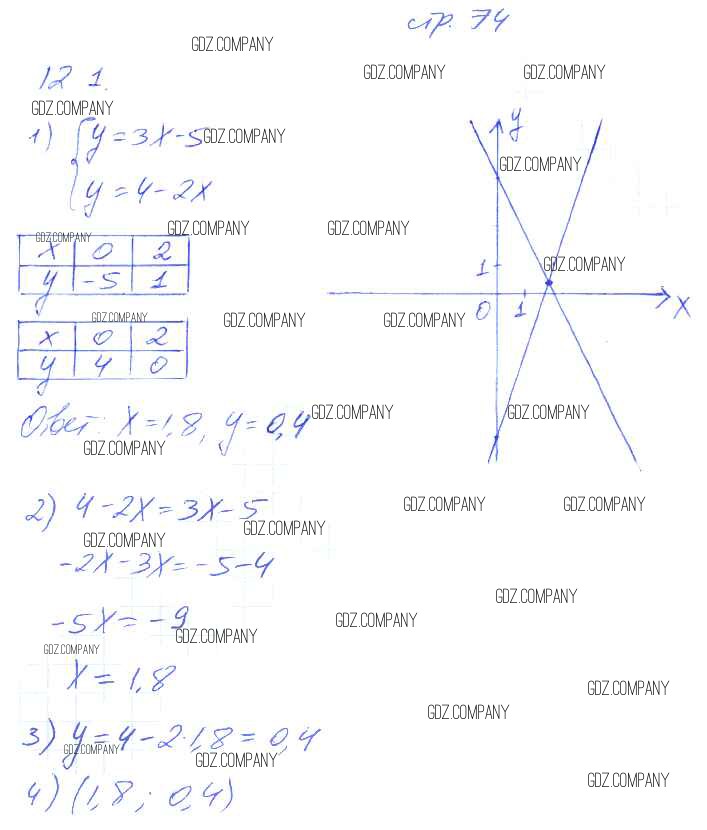 стр. 74
12 1.
1) { y = 3x - 5
y = 4 - 2x
x 0 2
y -5 1
x 0 2
y 4 0
Ответ: x = 1,8, y = 0,4
y
1
0 1 x
2) 4 - 2x = 3x - 5
-2x - 3x = -5 - 4
-5x = -9
x = 1,8
3) y = 4 - 2·1,8 = 0,4
4) (1,8 ; 0,4)
GDZ.COMPANY
GDZ.COMPANY GDZ.COMPANY
GDZ.COMPANY
GDZ.COMPANY
GDZ.COMPANY
GDZ.COMPANY GDZ.COMPANY
GDZ.COMPANY
GDZ.COMPANY
GDZ.COMPANY
GDZ.COMPANY GDZ.COMPANY
GDZ.COMPANY GDZ.COMPANY
GDZ.COMPANY
GDZ.COMPANY GDZ.COMPANY
GDZ.COMPANY
GDZ.COMPANY
GDZ.COMPANY
GDZ.COMPANY
GDZ.COMPANY
GDZ.COMPANY
GDZ.COMPANY
GDZ.COMPANY
GDZ.COMPANY
GDZ.COMPANY
GDZ.COMPANY